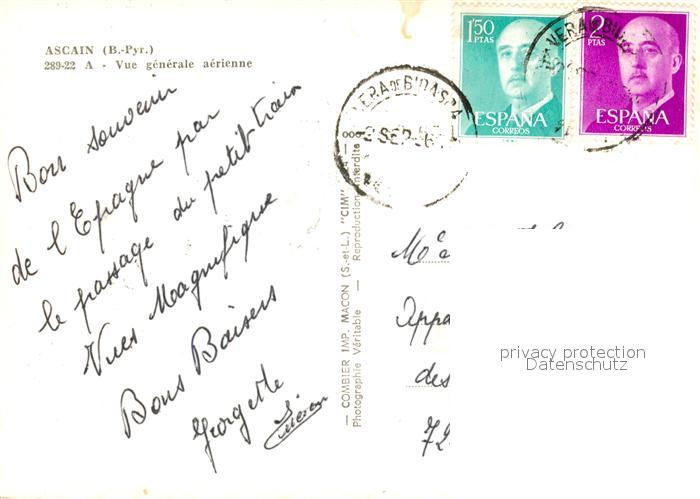 ASCAIN (B.-Pyr.)
289-22 A - Vue générale aérienne
Bon souvenir
de l'Epagne par
le passage du petit train
Vues Magnifique
Bons Baisers
Georgette
— COMBIER IMP. MACON (S.-et-L.) "CIM"
Photographie Véritable — Reproduction Interdite
1'50
PTAS
ESPAÑA
CORREOS
2
PTAS
ESPAÑA
CORREOS
VERA DE BIDASOA
2 SEP
VERA DE BID
Appa
des
72
privacy protection
Datenschutz